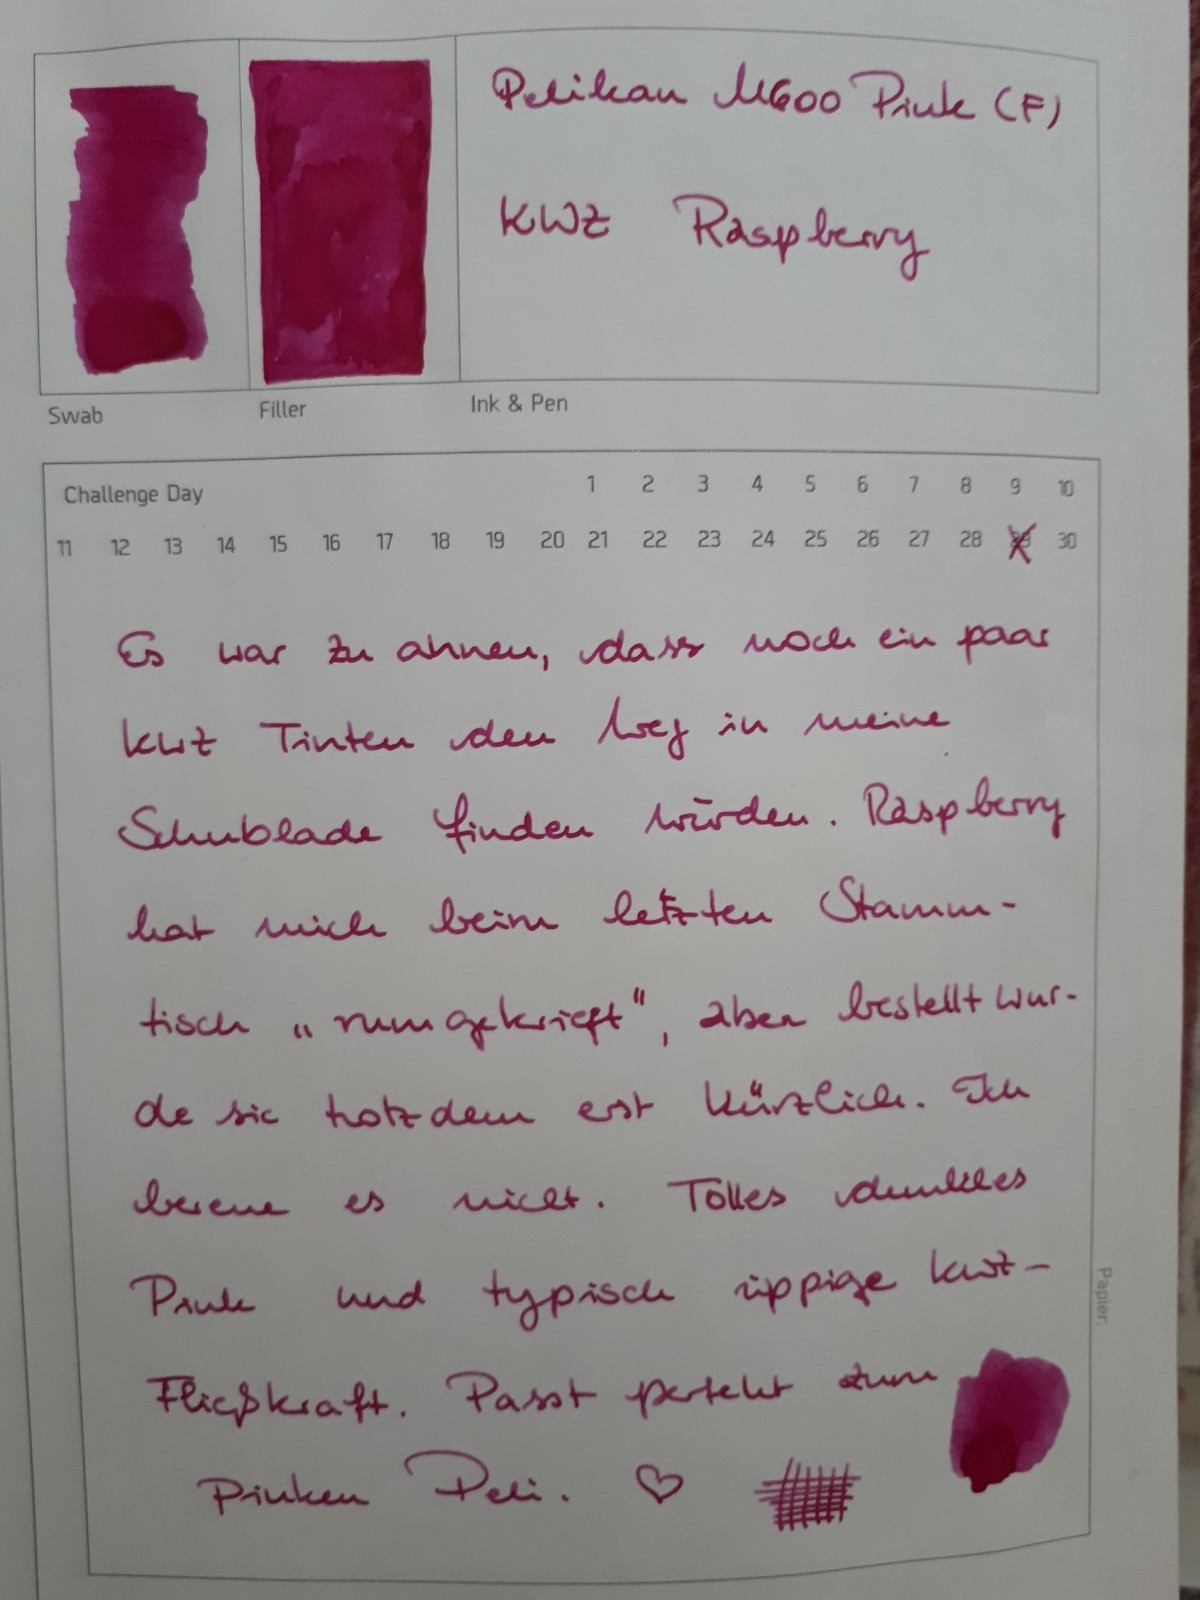 Pelikan M600 Pink (F)
KWZ Raspberry
Swab
Filler
Ink & Pen
Challenge Day 1 2 3 4 5 6 7 8 9 10
11 12 13 14 15 16 17 18 19 20 21 22 23 24 25 26 27 28 29 30
Es war zu ahnen, dass noch ein paar
KWZ Tinten den Weg in meine
Schublade finden würden. Raspberry
hat mich beim letzten Stamm-
tisch „rumgekrieft“, aber bestellt wur-
de sie trotzdem erst kürzlich. Ich
bereue es nicht. Tolles dunkles
Pink und typisch üppige KWZ-
Fließkraft. Passt perfekt zum
Pinken Peli. ♡
Papier: